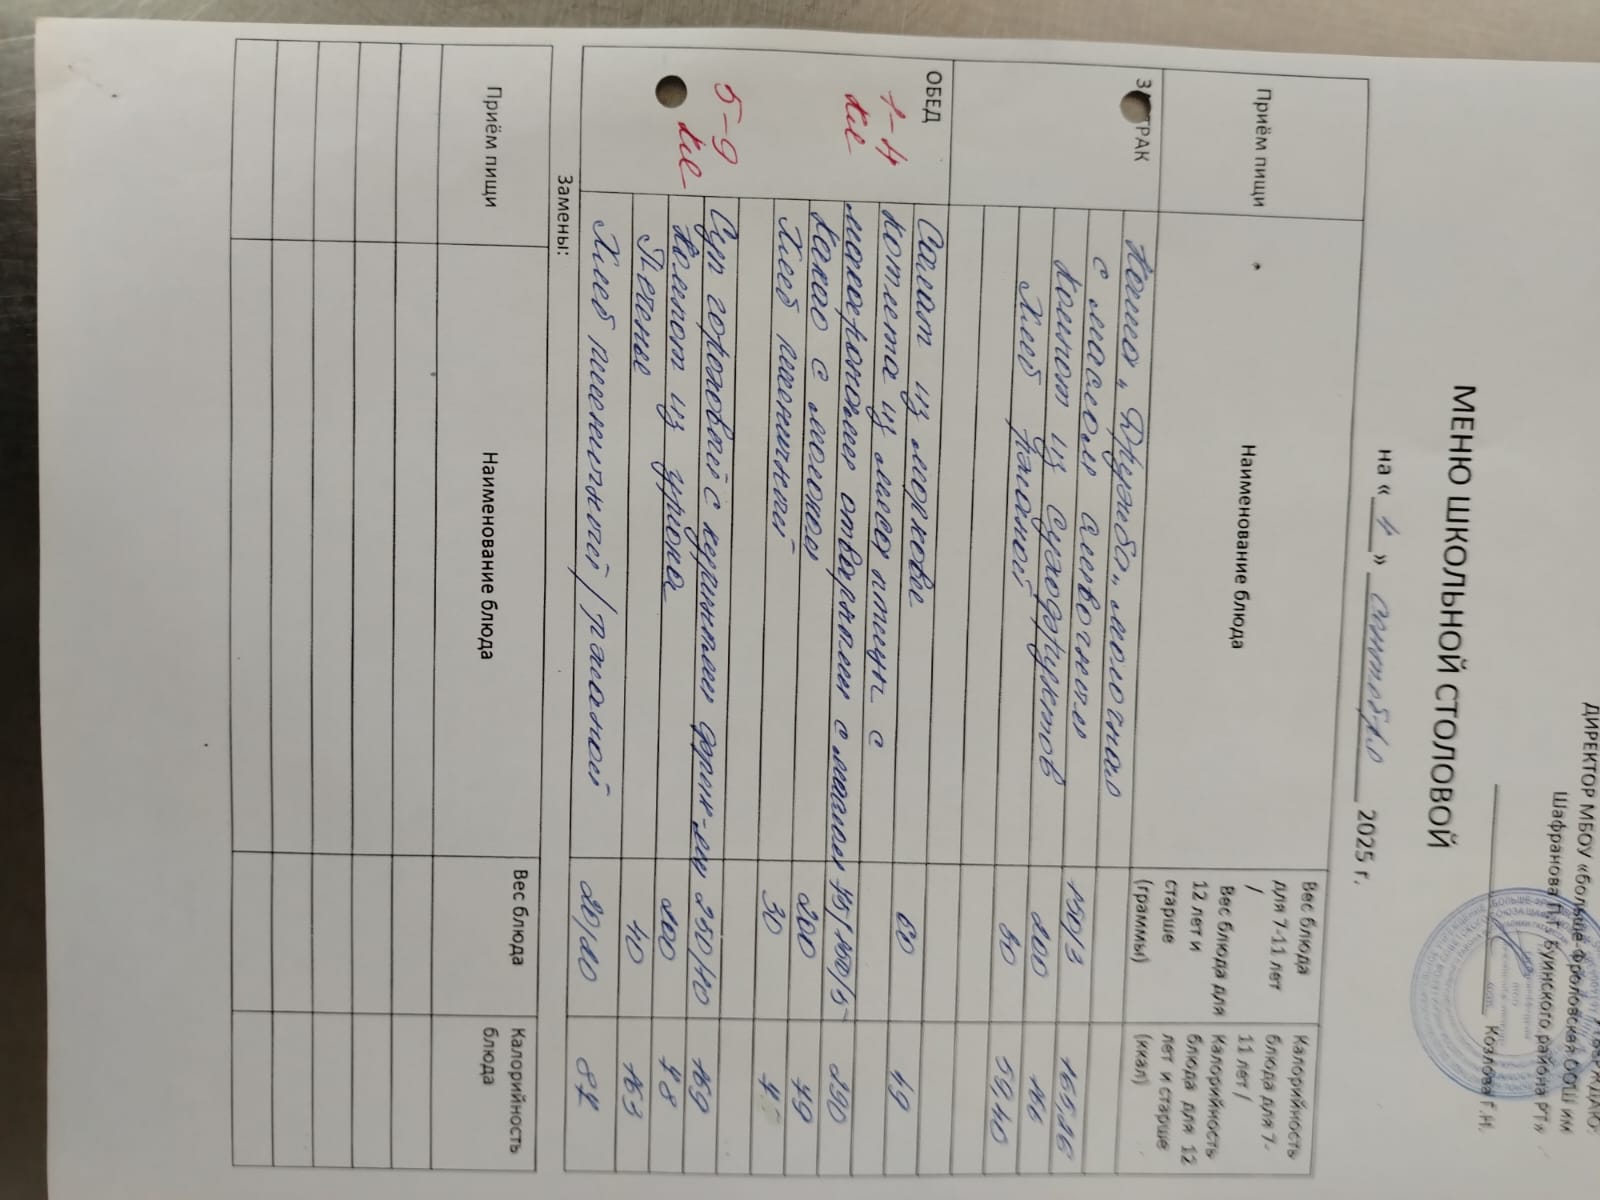 УТВЕРЖДАЮ:
ДИРЕКТОР МБОУ «Больше-Фроловская ООШ им
Шафранова П.Г Буинского района РТ»
Козлова Г.Н.
МЕНЮ ШКОЛЬНОЙ СТОЛОВОЙ
на « 4 » сентября 2025 г.
Приём пищи | Наименование блюда | Вес блюда для 7-11 лет / Вес блюда для 12 лет и старше (граммы) | Калорийность блюда для 7-11 лет / Калорийность блюда для 12 лет и старше (ккал)
ЗАВТРАК | Каша „Дружба" молочная
с маслом сливочным | 150/3 | 165,16
Компот из сухофруктов | 200 | 166
Хлеб ржаной | 30 | 59,40
ОБЕД
1-4 кл | Салат из моркови | 60 | 49
котлета из мяса птицы с
макаронами отварными с маслом | 75/150/5 | 290
какао с молоком | 200 | 79
Хлеб пшеничный | 30
5-9 кл | Суп гороховый с куриным фрик-ми | 250/10 | 169
Компот из урюка | 200 | 78
Печенье | 40 | 163
Хлеб пшеничный/ржаной | 20/20 | 87
Замены:
Приём пищи | Наименование блюда | Вес блюда | Калорийность блюда